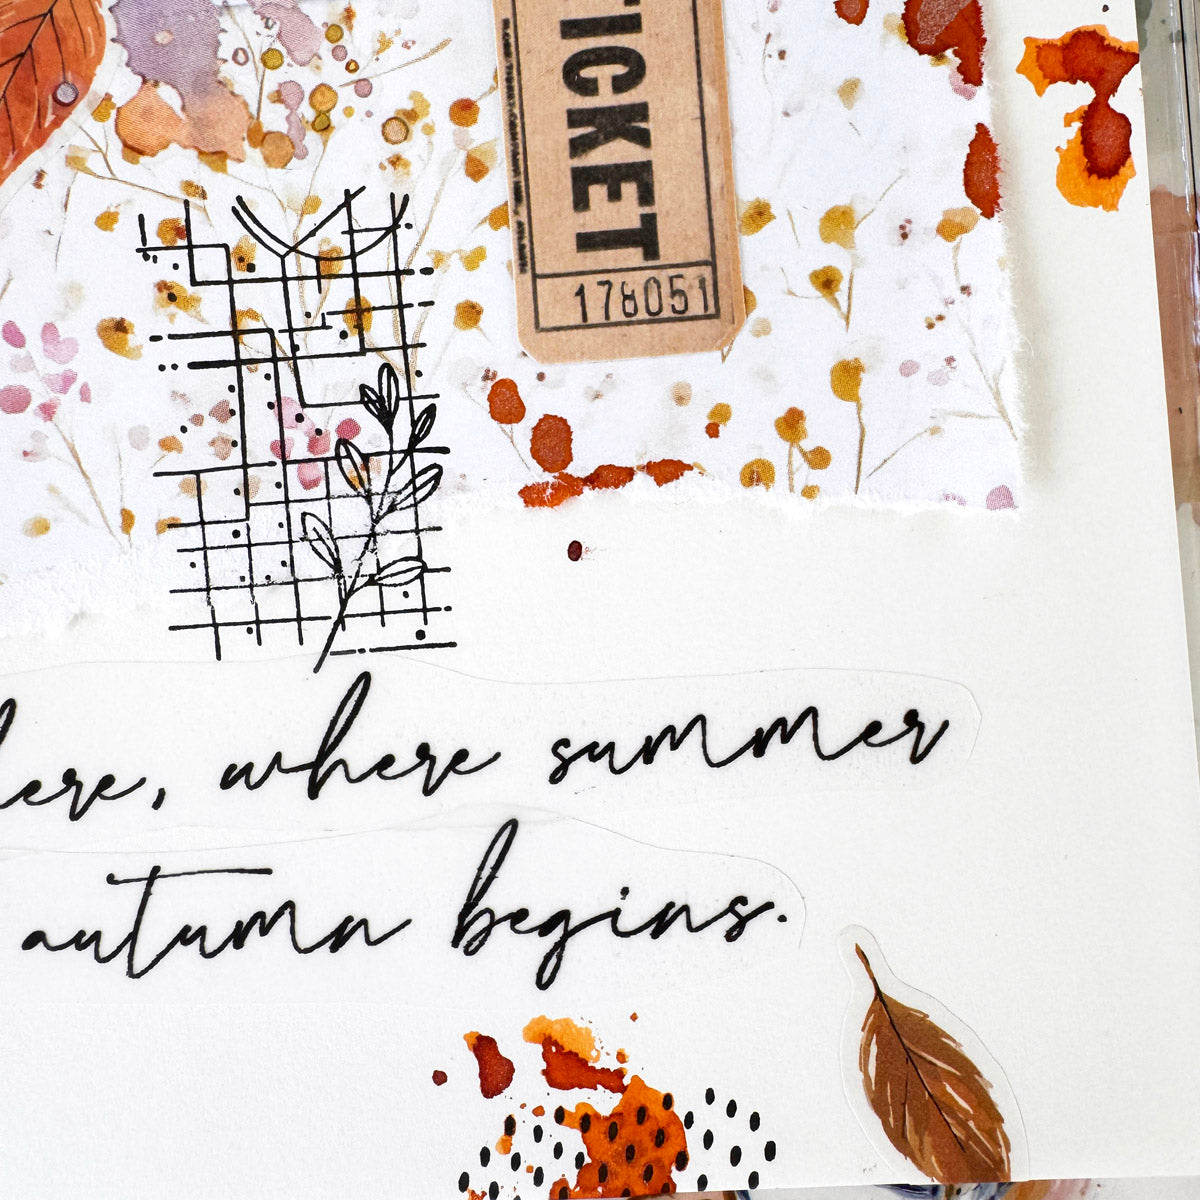 TICKET
178051
here, where summer
autumn begins.